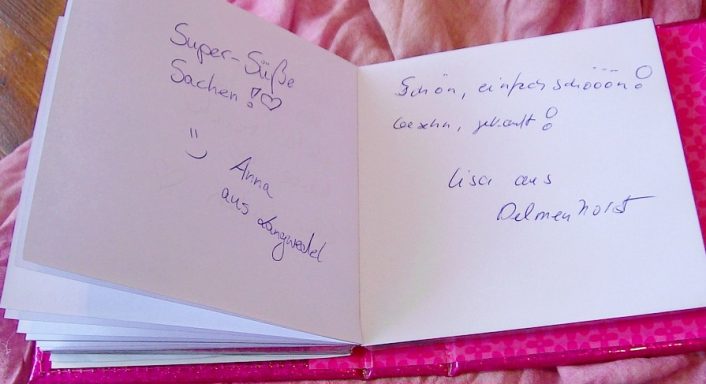 Super-Süße
Sachen!♡
:)
Anna
aus Langwedel
Schön, einfach schööön!
Gesehn, gekauft!
Lisa aus
Delmenhorst